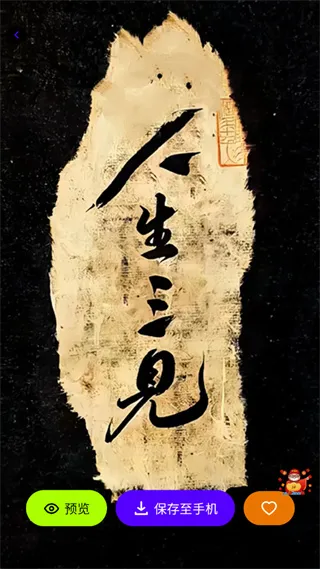 人生三見
预览
保存至手机